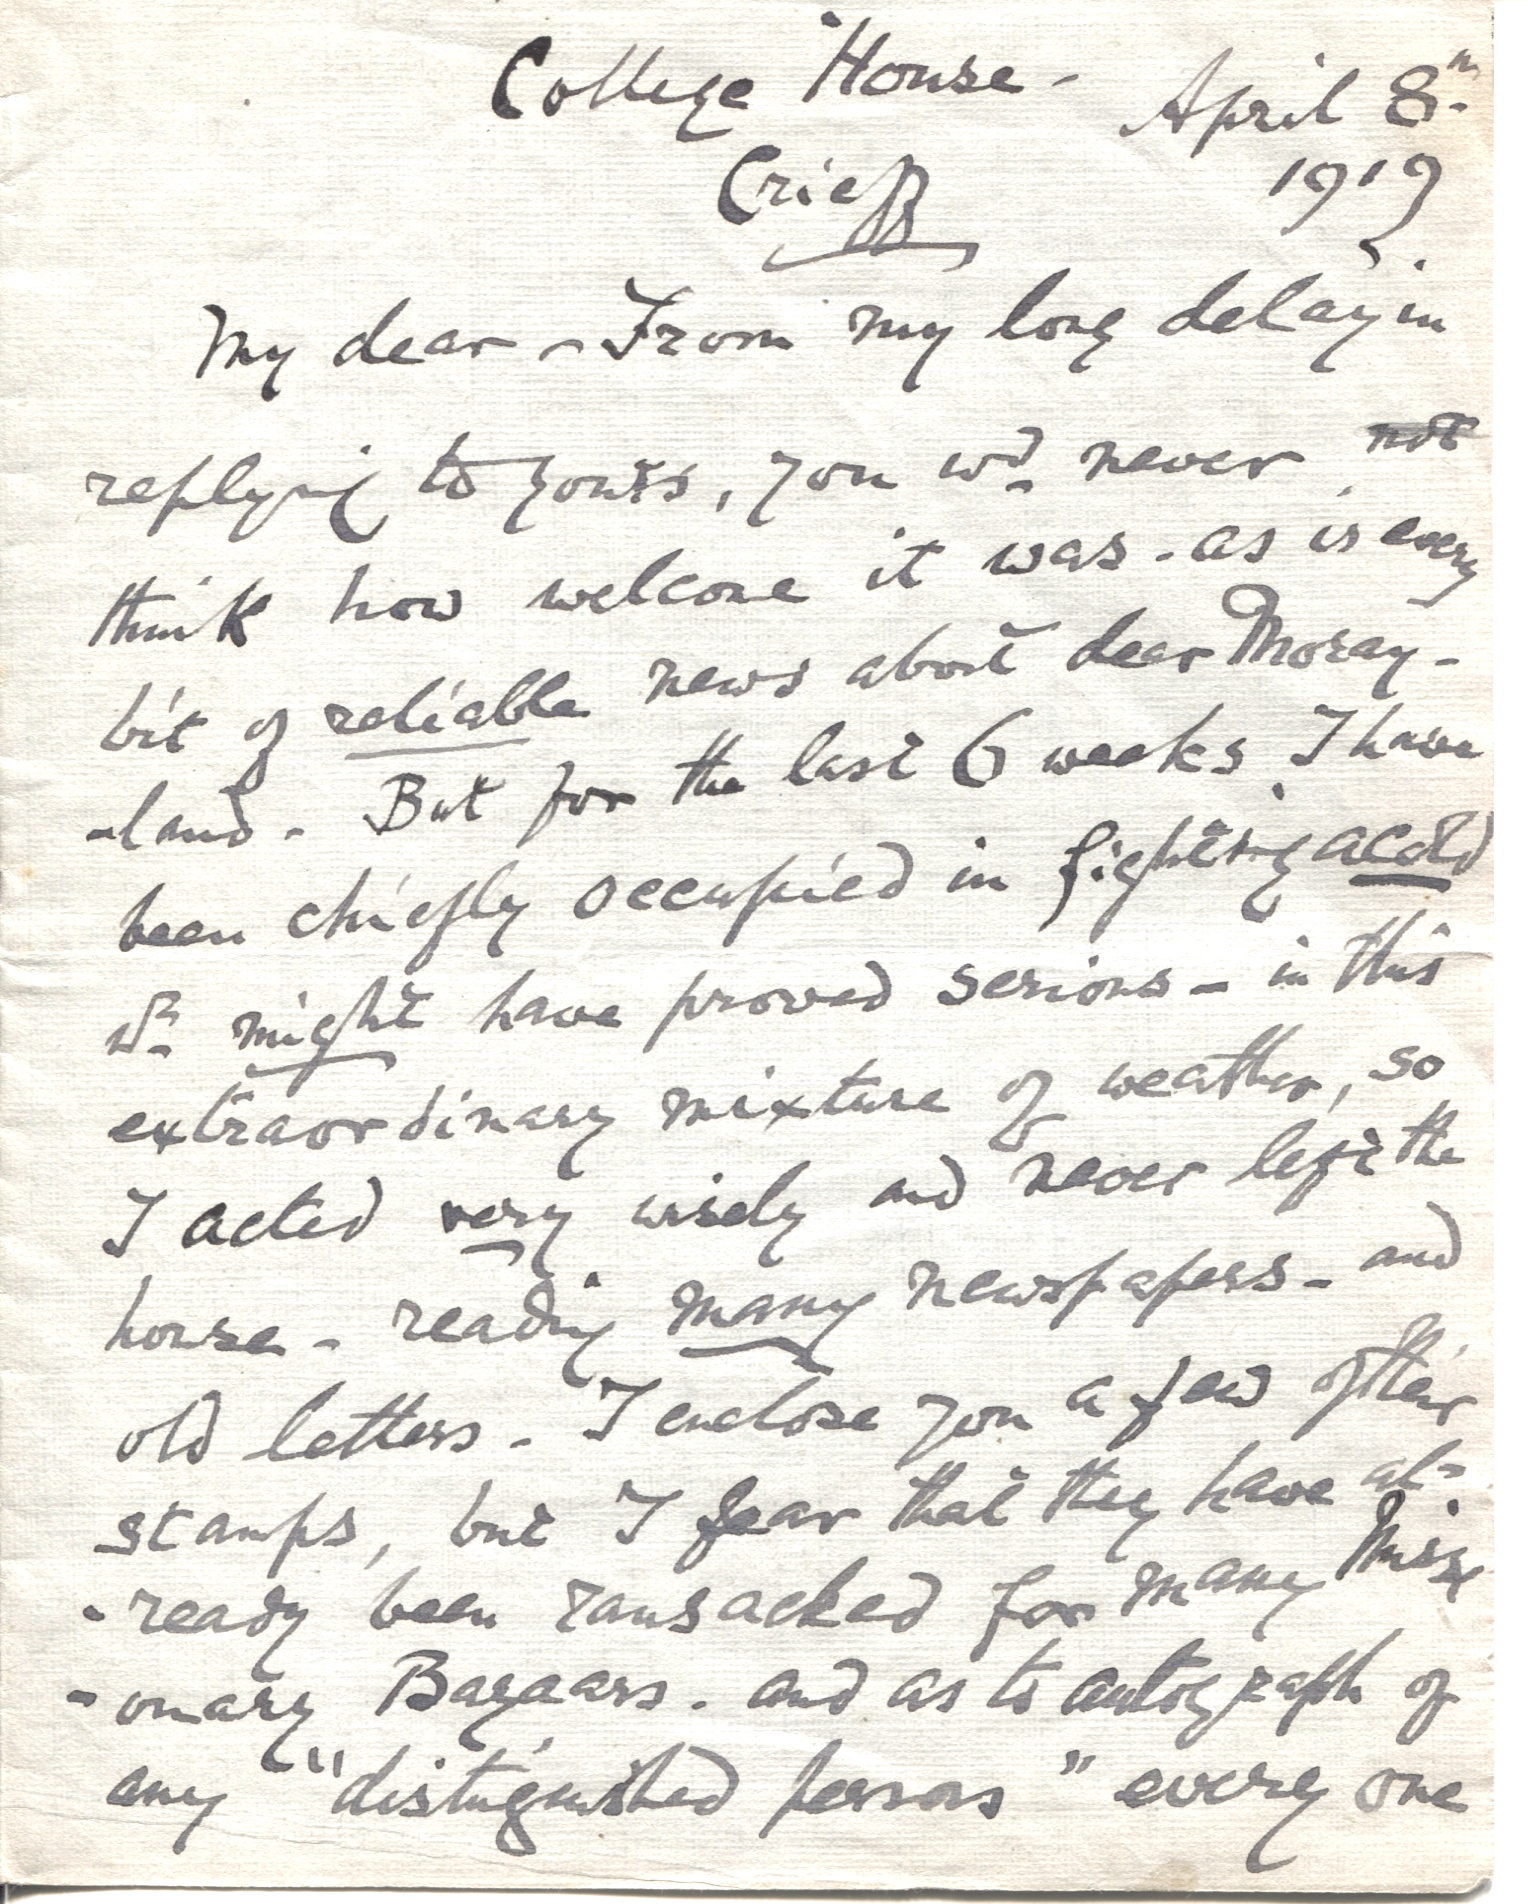 College House -
April 8th
Crieff
1919
My dear - From my long delay in
replying to yours, you wd. never not
think how welcome it was - as is every
bit of reliable news about dear Moray-
-land - But for the last 6 weeks I have
been chiefly occupied in fighting a cold
wh. might have proved serious - in this
extraordinary mixture of weather, so
I acted very wisely and never left the
house - reading many newspapers - and
old letters - I enclose you a few of their
stamps, but I fear that they have al-
-ready been ransacked for many Miss
-onary Bazaars - and as to autograph of
any "distinguished persons" every one